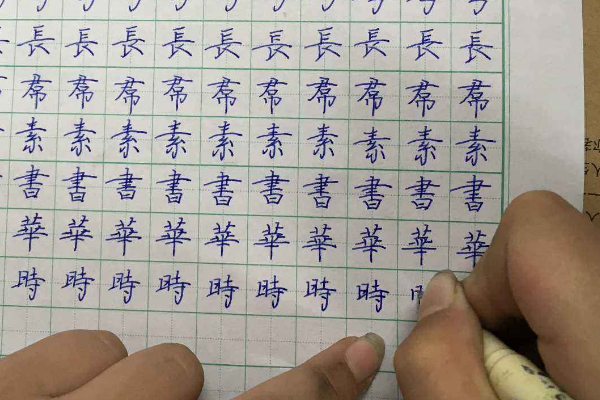 長長長長長長長長長長
帬帬帬帬帬帬帬帬帬帬
素素素素素素素素素素
書書書書書書書書書書
華華華華華華華華華華
時時時時時時時時